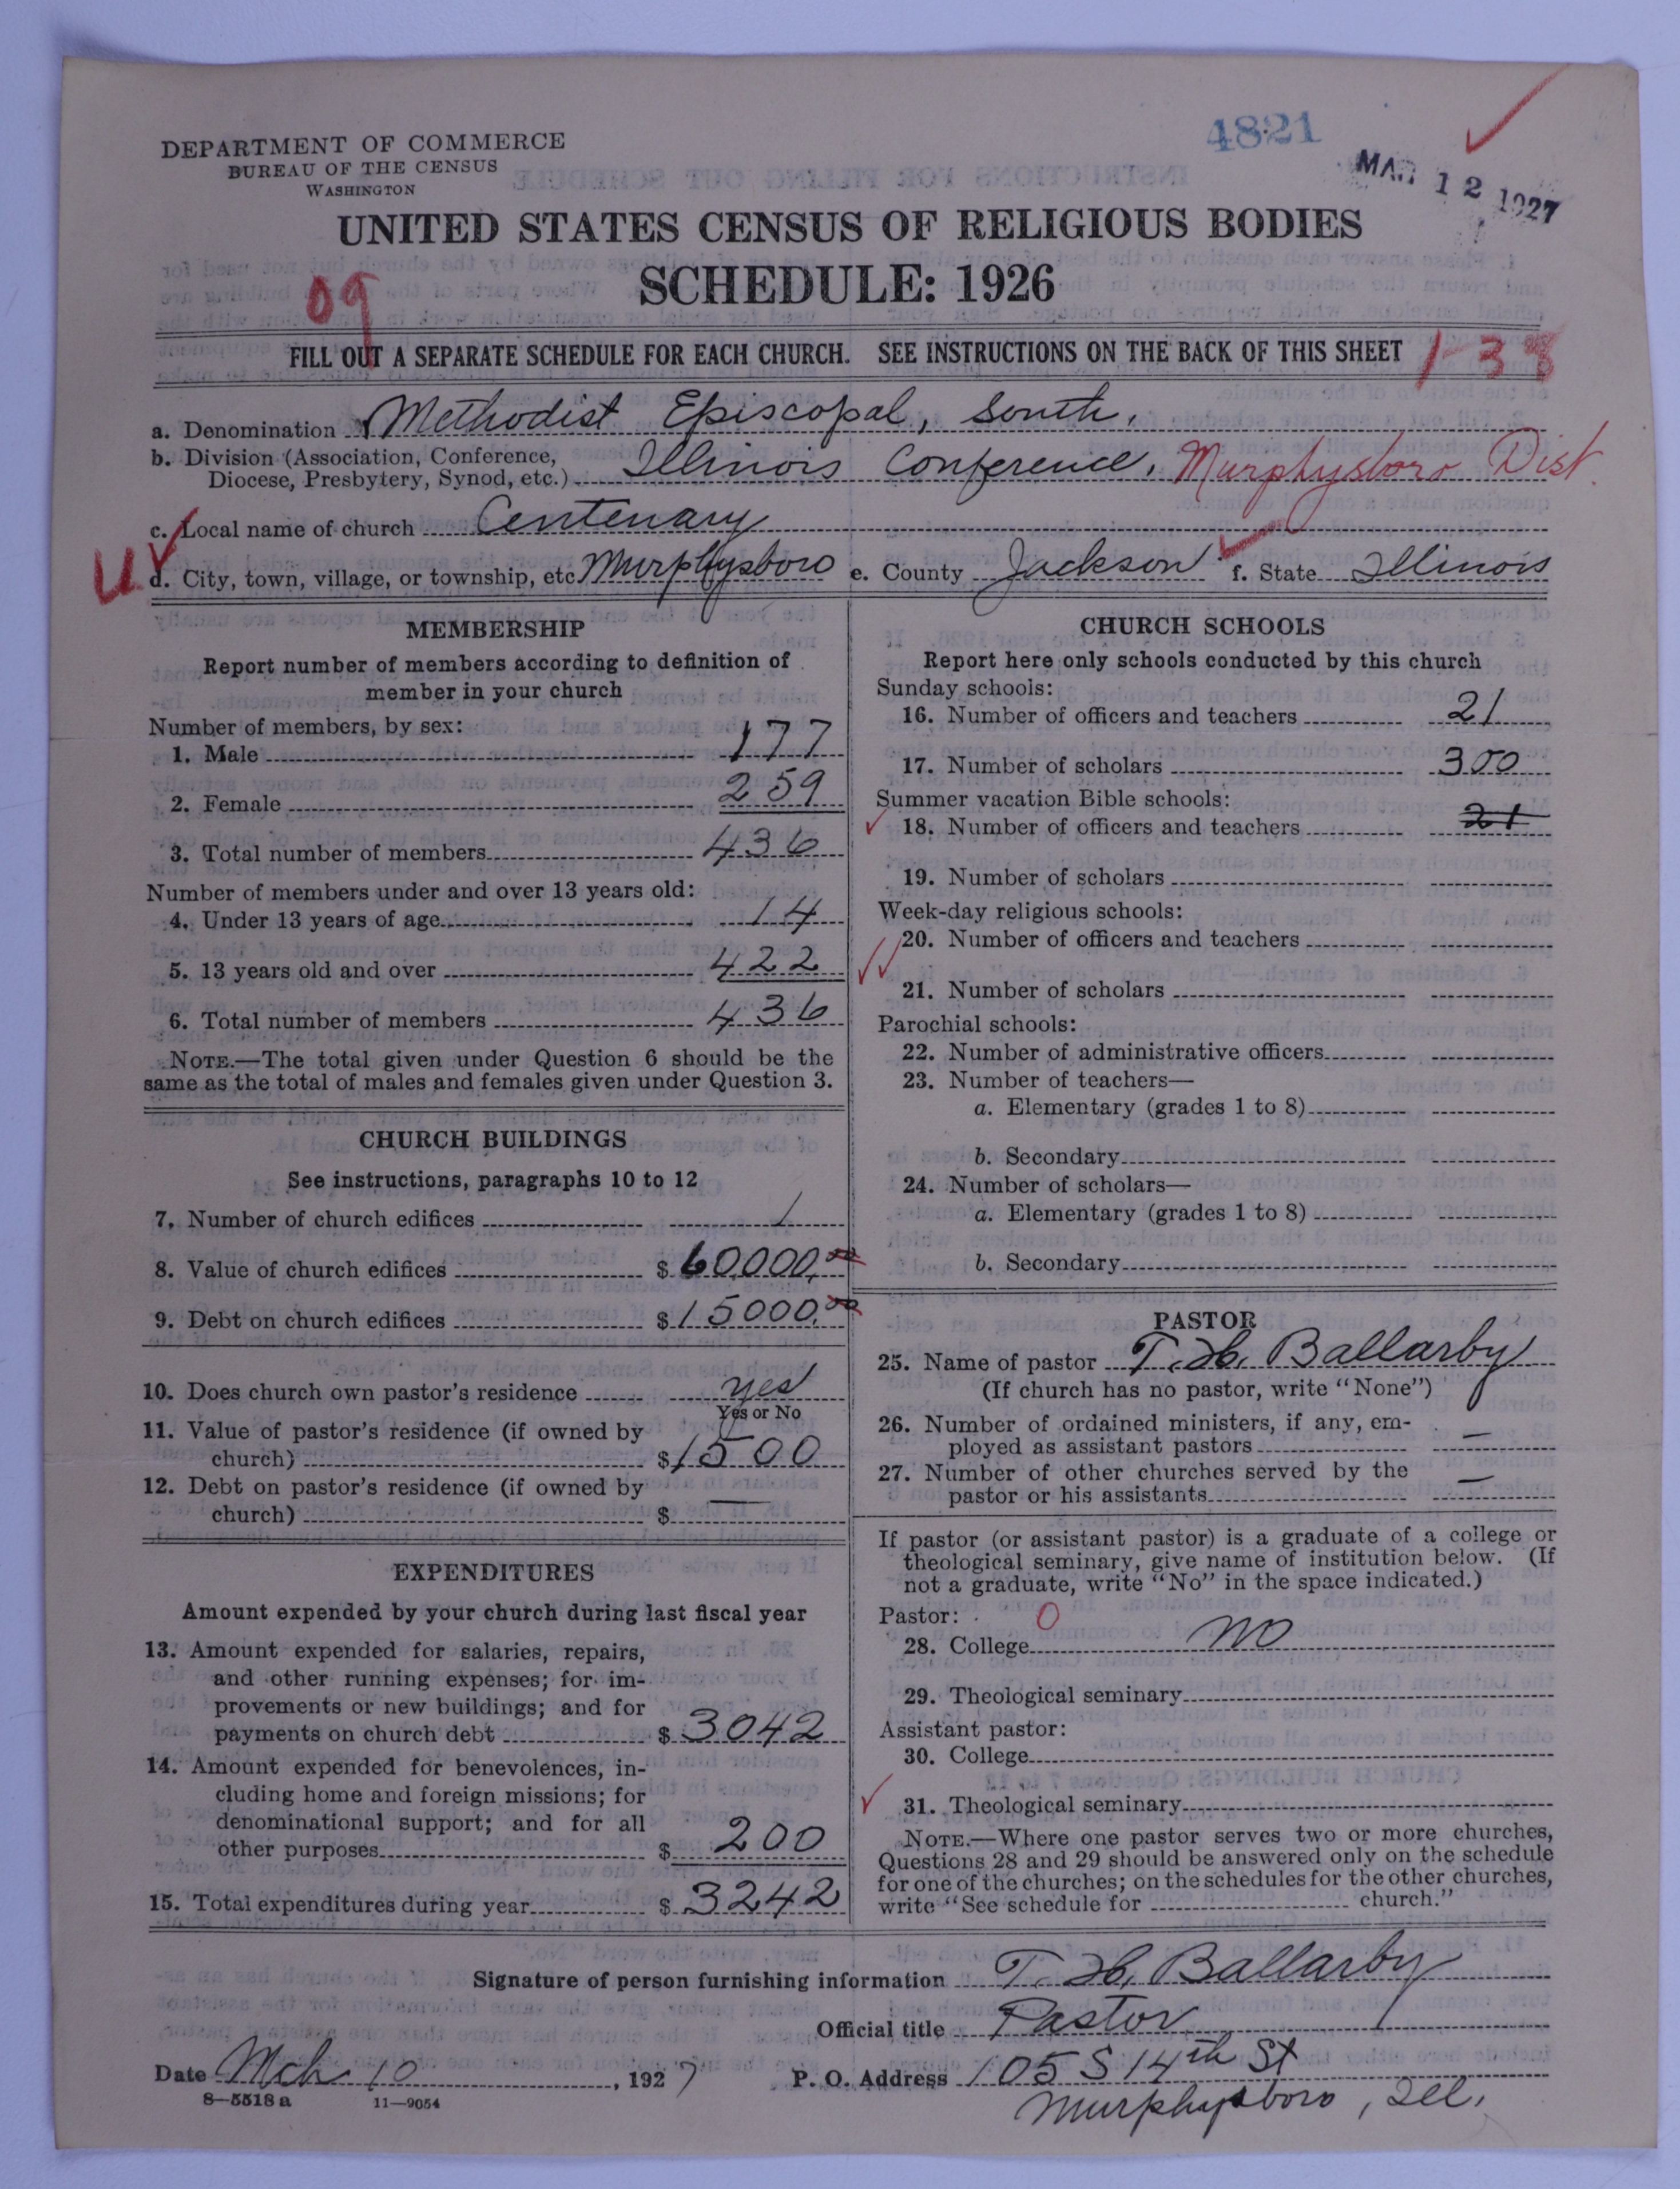 4821
MAR 12 1927
DEPARTMENT OF COMMERCE
BUREAU OF THE CENSUS
WASHINGTON
UNITED STATES CENSUS OF RELIGIOUS BODIES
SCHEDULE: 1926
09
FILL OUT A SEPARATE SCHEDULE FOR EACH CHURCH. SEE INSTRUCTIONS ON THE BACK OF THIS SHEET 1-38
a. Denomination Methodist Episcopal, South.
b. Division (Association, Conference, Diocese, Presbytery, Synod, etc.) Illinois Conference. Murphysboro Dist.
c. Local name of church Centenary
U d. City, town, village, or township, etc Murphysboro e. County Jackson f. State Illinois
MEMBERSHIP
Report number of members according to definition of
member in your church
Number of members, by sex:
1. Male 177
2. Female 259
3. Total number of members 436
Number of members under and over 13 years old:
4. Under 13 years of age 14
5. 13 years old and over 422
6. Total number of members 436
NOTE.—The total given under Question 6 should be the
same as the total of males and females given under Question 3.
CHURCH BUILDINGS
See instructions, paragraphs 10 to 12
7. Number of church edifices 1
8. Value of church edifices $ 60,000.00
9. Debt on church edifices $ 15000.00
10. Does church own pastor's residence yes
Yes or No
11. Value of pastor's residence (if owned by
church) $ 1500
12. Debt on pastor's residence (if owned by
church) $ —
EXPENDITURES
Amount expended by your church during last fiscal year
13. Amount expended for salaries, repairs,
and other running expenses; for im-
provements or new buildings; and for
payments on church debt $ 3042
14. Amount expended for benevolences, in-
cluding home and foreign missions; for
denominational support; and for all
other purposes $ 200
15. Total expenditures during year $ 3242
CHURCH SCHOOLS
Report here only schools conducted by this church
Sunday schools:
16. Number of officers and teachers 21
17. Number of scholars 300
Summer vacation Bible schools:
18. Number of officers and teachers 21
19. Number of scholars
Week-day religious schools:
20. Number of officers and teachers
21. Number of scholars
Parochial schools:
22. Number of administrative officers
23. Number of teachers—
a. Elementary (grades 1 to 8)
b. Secondary
24. Number of scholars—
a. Elementary (grades 1 to 8)
b. Secondary
PASTOR
25. Name of pastor T. H. Ballarby
(If church has no pastor, write "None")
26. Number of ordained ministers, if any, em-
ployed as assistant pastors —
27. Number of other churches served by the
pastor or his assistants —
If pastor (or assistant pastor) is a graduate of a college or
theological seminary, give name of institution below. (If
not a graduate, write "No" in the space indicated.)
Pastor: 0
28. College no
29. Theological seminary
Assistant pastor:
30. College
31. Theological seminary
NOTE.—Where one pastor serves two or more churches,
Questions 28 and 29 should be answered only on the schedule
for one of the churches; on the schedules for the other churches,
write "See schedule for church."
Signature of person furnishing information T. H. Ballarby
Official title Pastor
Date Mch 10, 1927 P. O. Address 105 S 14th St
8—5518 a 11—9054 Murphysboro, Ill.